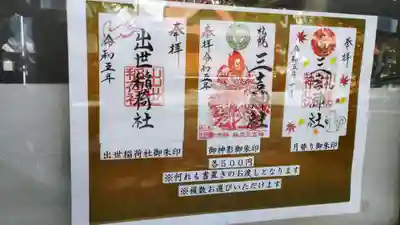 奉拝
出世稲荷社
令和五年
出世稲荷社御朱印
奉拝
札幌
三吉神社
令和五年
御神影御朱印
奉拝
三吉神社
令和五年
月替り御朱印
各５００円
※何れも書置きのお渡しとなります
※複数お選びいただけます